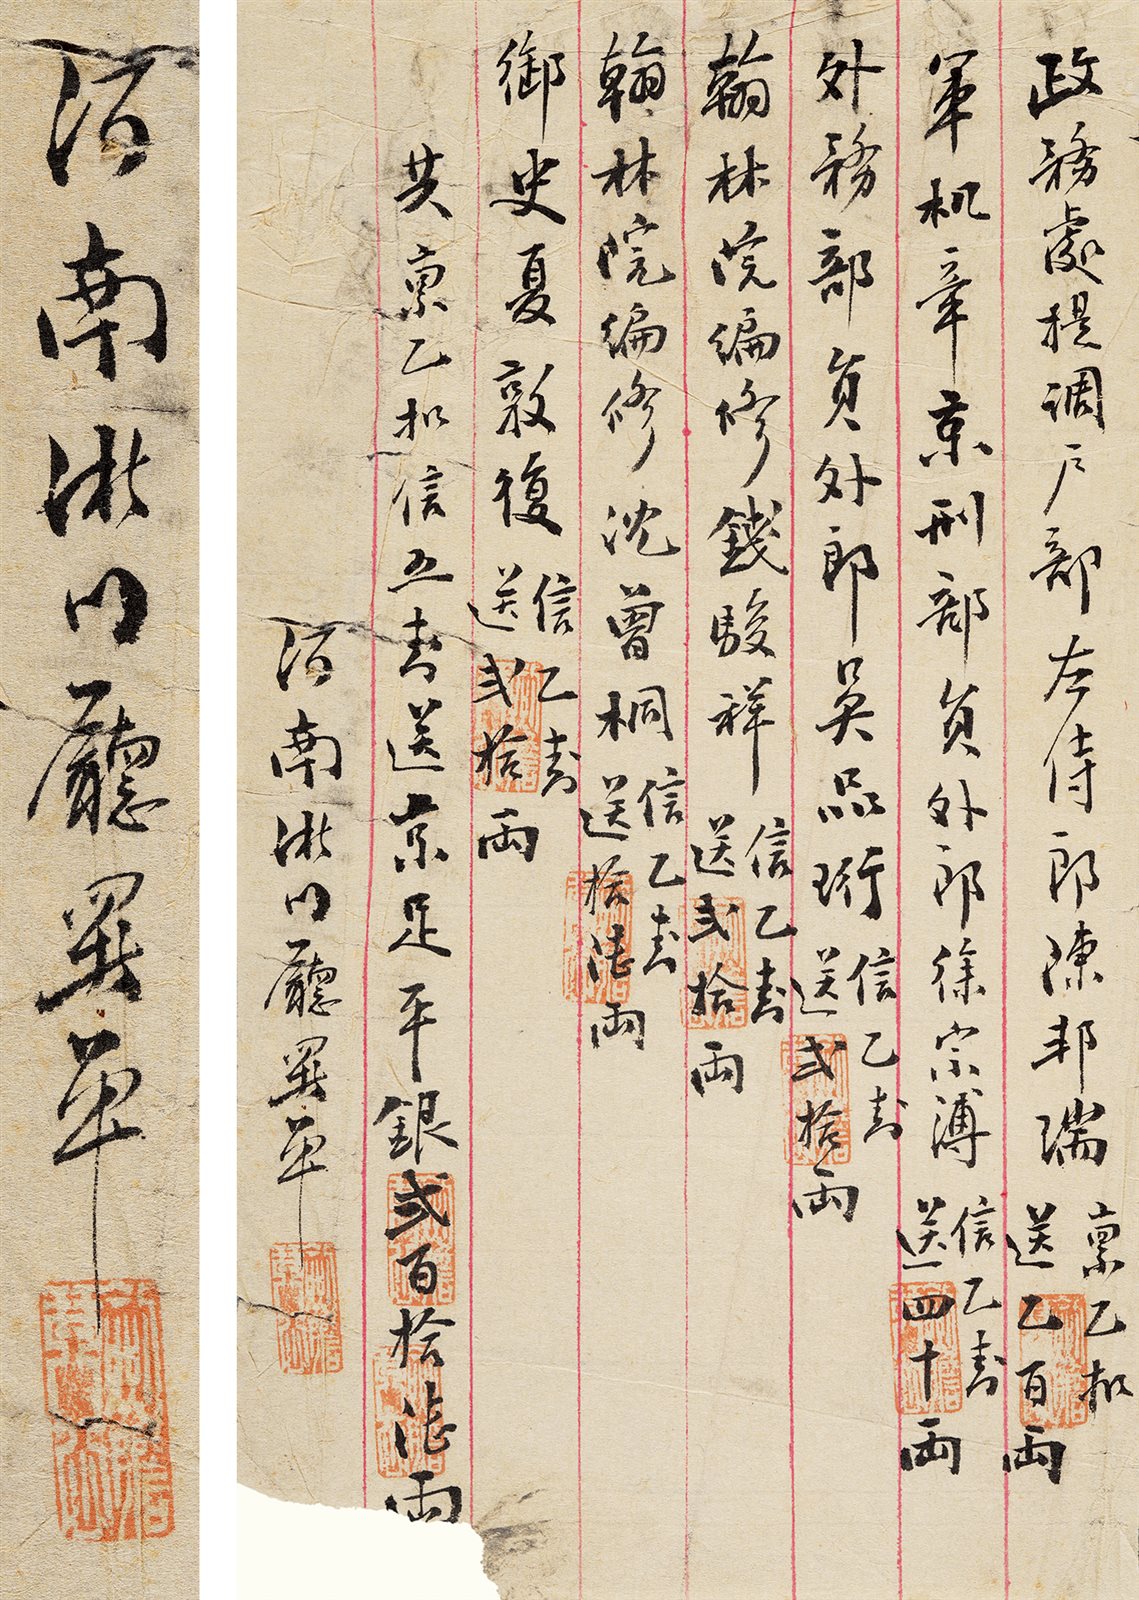 政務處提調戶部左侍郎陳邦瑞
稟乙扣
送乙百兩
軍机章京刑部員外郎徐宗溥
信乙封
送四十兩
外務部員外郎吳品珩
信乙封
送弍拾兩
翰林院編修錢駿祥
信乙封
送弍拾兩
翰林院編修沈曾桐
信乙封
送拾陸兩
御史夏敦復
信乙封
送弍拾兩
共稟乙扣信五封送京足平銀弍百拾陸兩
河南淅川廳單
河南淅川廳單